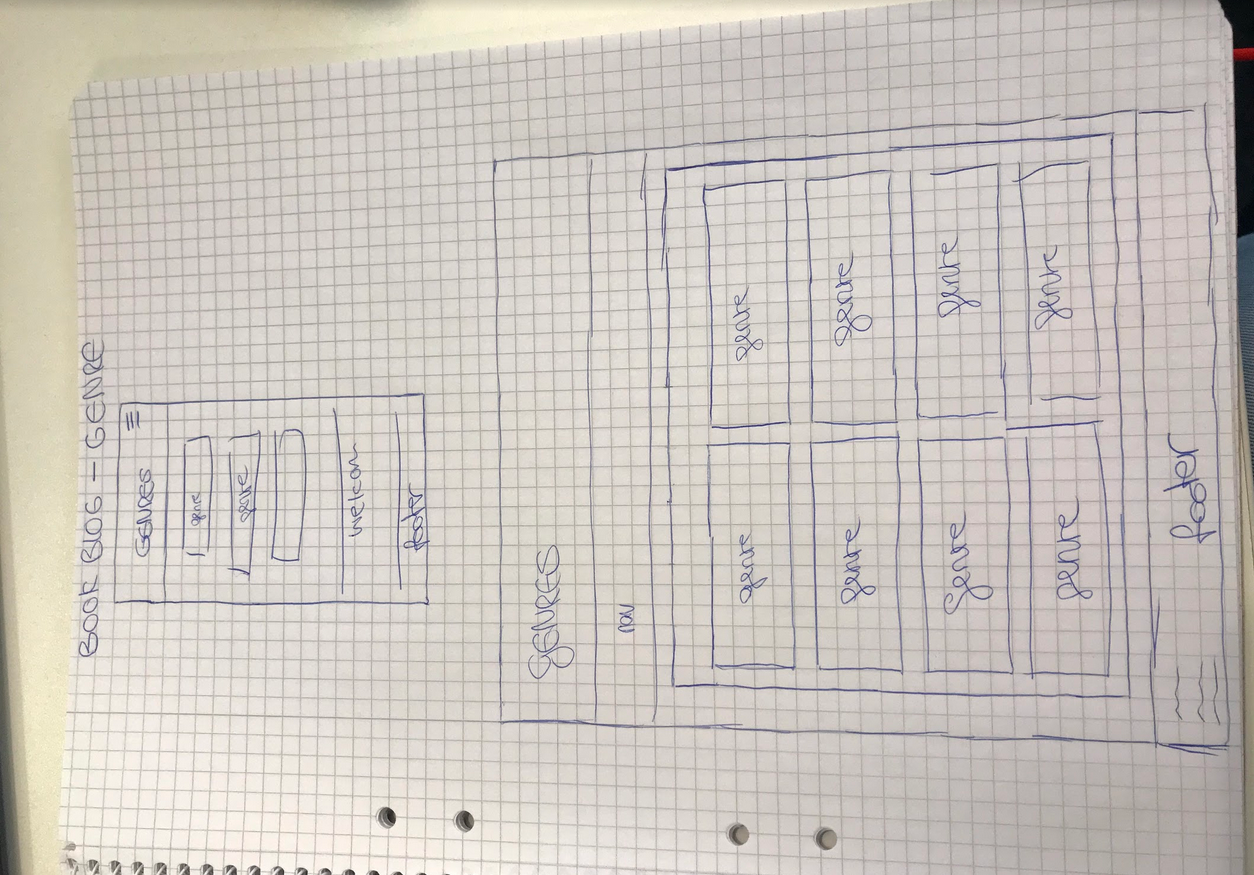 BOOK BLOG - GENRE
GENRES
genre
genre
welcom
footer
GENRES
nav
genre genre
genre genre
genre genre
genre genre
footer